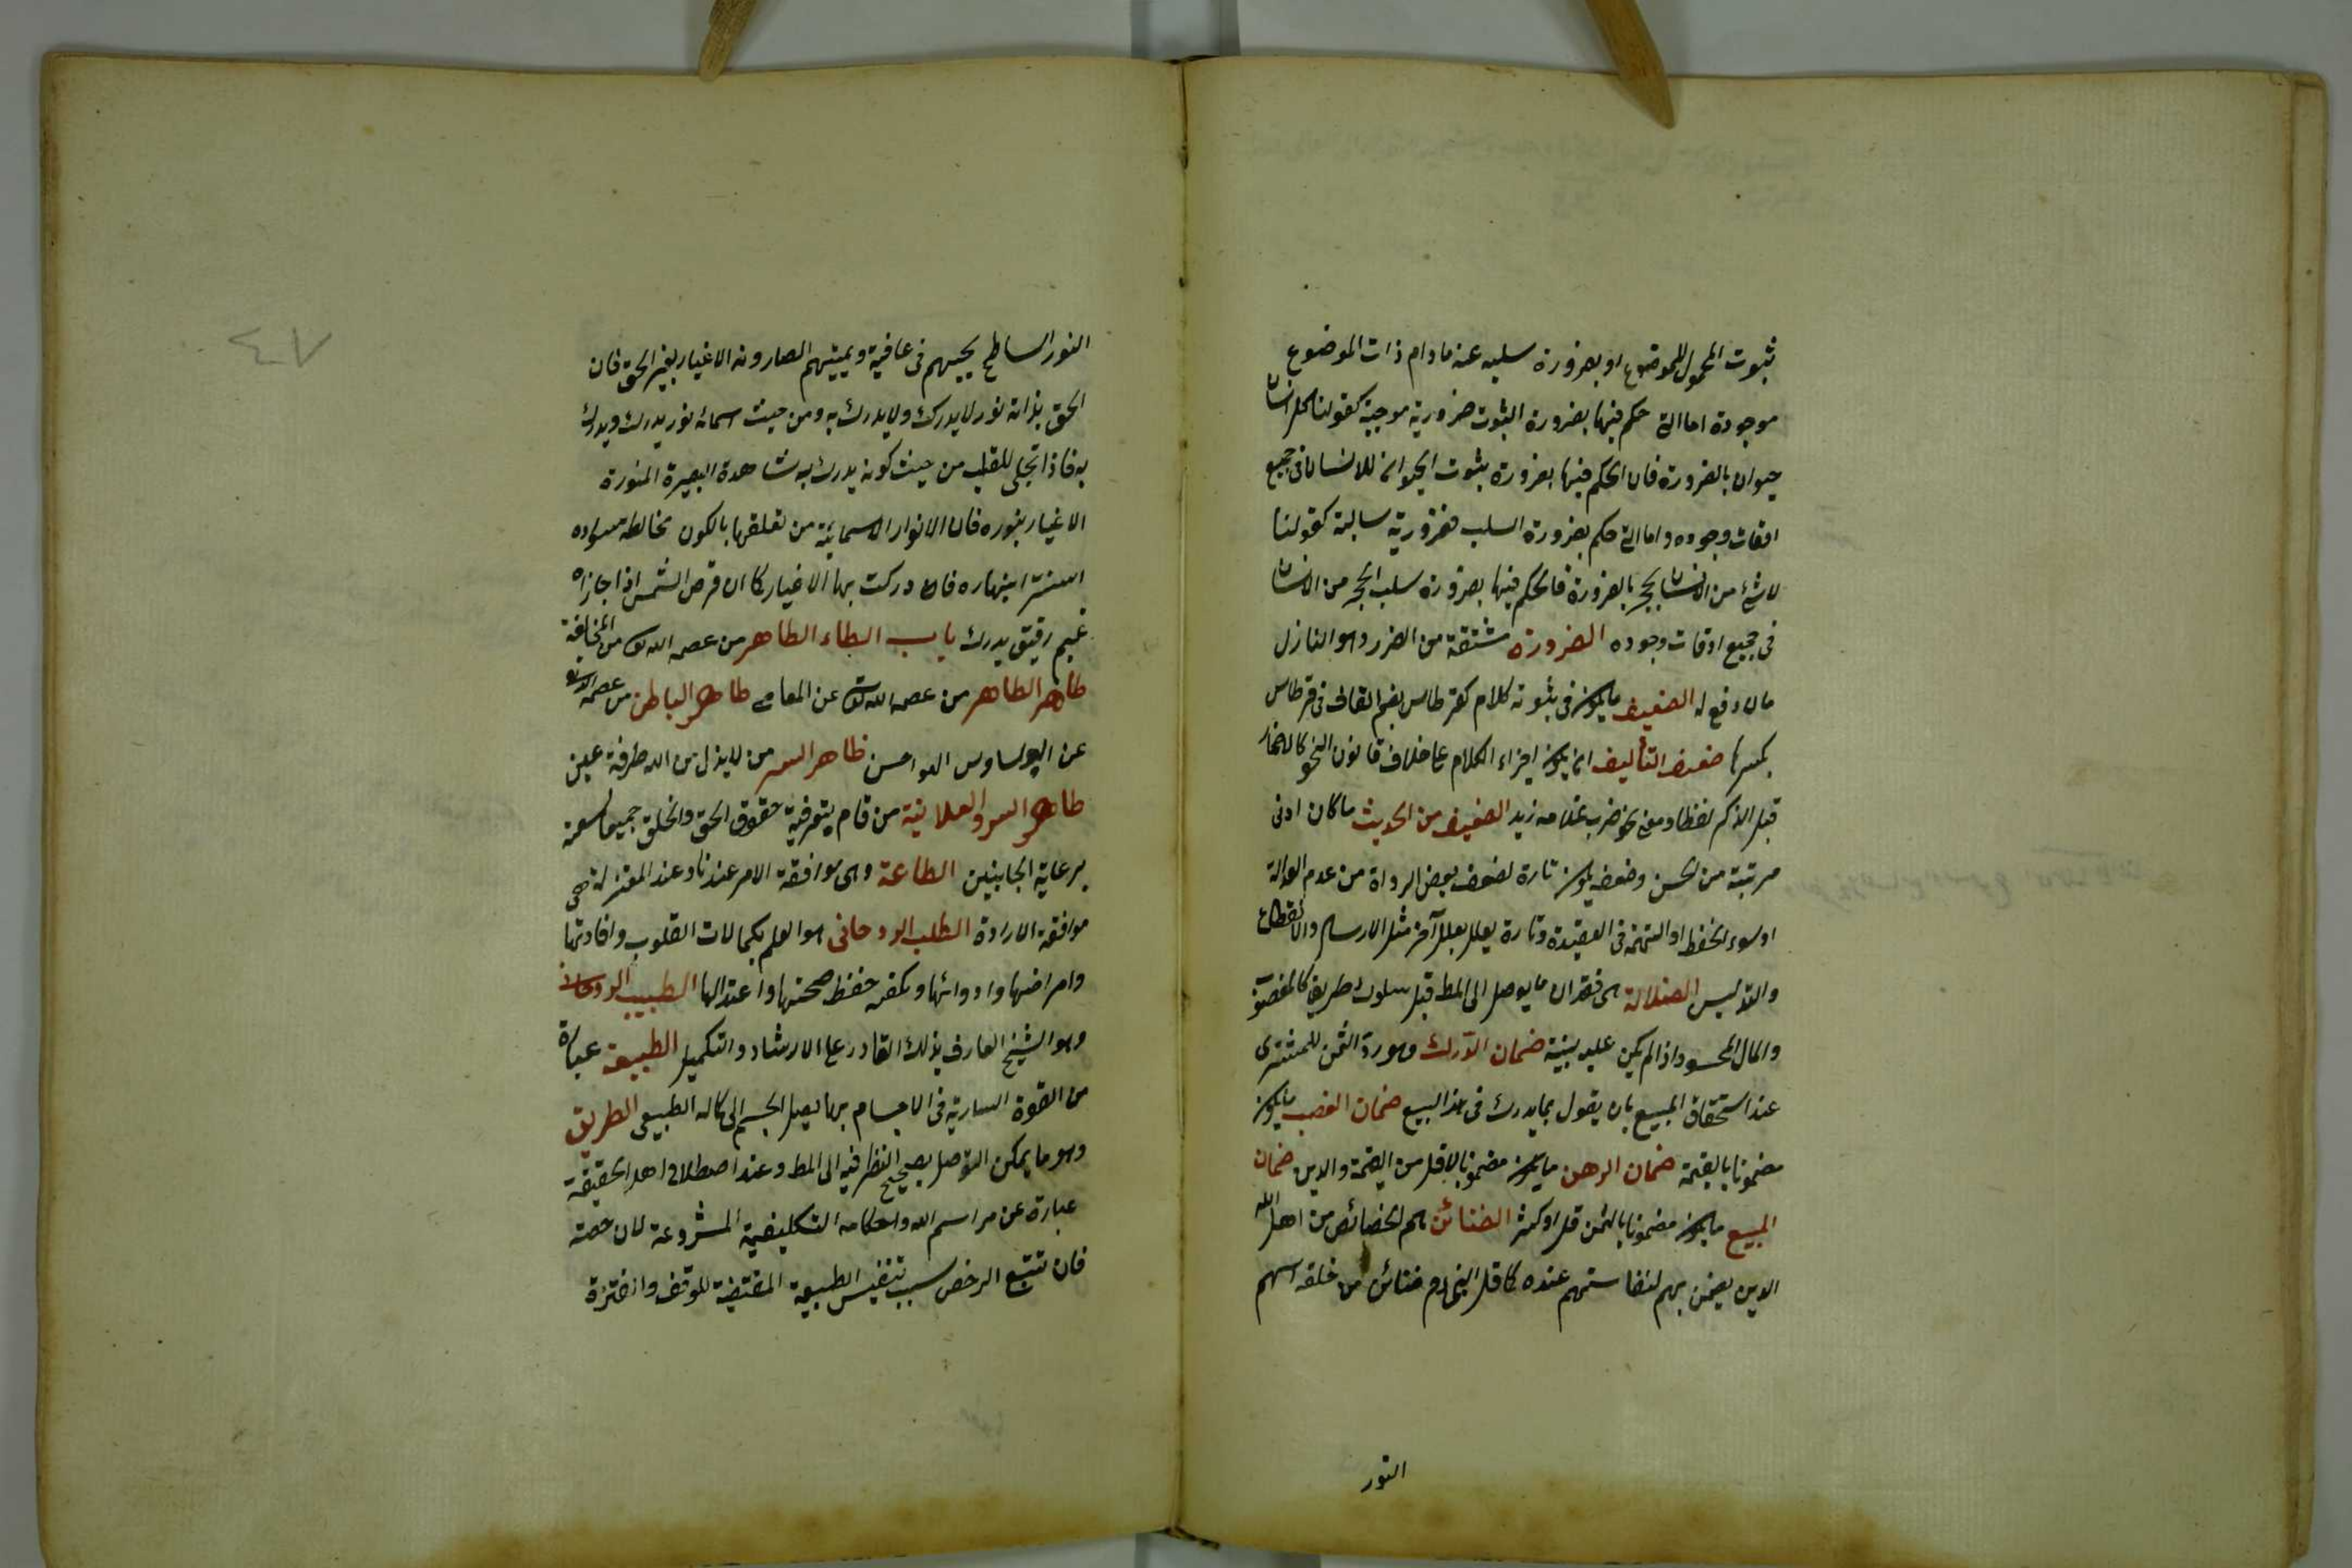 ثبوت المحمول للموضوع او بضرورة سلبه عنه مادام ذات الموضوع
موجودة اما التى حكم فيها بضرورة الثبوت ضرورية موجبة كقولنا كل انسان
حيوان بالضرورة فان الحكم فيها بضرورة بثوت الحيوان للانسان فى جميع
اوقات وجوده واما التى حكم بضرورة السلب فضرورية سالبة كقولنا
لا شئ من الانسان بحجر بالضرورة فالحكم فيها بضرورة سلب الحجر من الانسان
فى جميع اوقات وجوده الضرورة مشتقة من الضرر وهو النازل
ما لا دفع له الضعيف ما يكون فى ثبوته كلام كقرطاس بضم القاف فى قرطاس
بكسرها ضعف التأليف ان يكون اجزاء الكلام على خلاف قانون النحو كالاضمار
قبل الذكر لفظا ومعنى نحو ضرب غلامه زيد الضعيف من الحديث ما كان ادنى
مرتبة من الحسن وضعفه يكون تارة لضعف بعض الرواة من عدم العدالة
او سوء الحفظ او التهمة فى العقيدة وتارة بعلل بعلل آخر مثل الارسال والانقطاع
والتدليس الضلالة هى فقدان ما يوصل الى المط قبل سلوك طريق كالمغصوب
والمال المحسود اذا لم يكن عليه بينة ضمان الدرك وهو رد الثمن للمشترى
عند استحقاق المبيع بان يقول بما يدرك فى هذا البيع ضمان الغصب ما يكون
مضمونا بالقيمة ضمان الرهن ما يكون مضمونا بالاقل من القيمة والدين ضمان
المبيع ما يكون مضمونا بالثمن قل او كثر الضنائن هم الخصائص من اهل الله
الذين يضمن بهم لنفاستهم عنده كما قل النبى ءم ضنائن من خلقه اسهم
النور
النور الساطع يحييهم فى عافية ويميتهم الصار ونه الاغيار بغير الحق فان
الحق بذاته نور لا يدرك ولا يدرك به ومن حيث اسمائه نور يدرك ويدرك
به فاذا تجلى للقلب من حيث كونه يدرك به شاهدة البصيرة المنورة
الاغيار بنوره فان الانوار الاسمائية من تعلقها بالكون مخالطه بسواده
استتر انبهاره فادركت بها الاغيار كما ان قرص الشمس اذا جازاه
غيم رقيق يدرك باب الطاء الطاهر من عصمه الله تعالى من المخالفة
طاهر الظاهر من عصمه الله تعالى عن المعاصى طاهر الباطن من عصمه الله تعالى
عن الوساوس والهواجس ظاهر السر من لا يذل من الله طرفة عين
طاهر السر والعلانية من قام بتوفية حقوق الحق والخلق جميعا لسعته
برعاية الجانبين الطاعة وهى موافقة الامر عندنا وعند المعتزلة هى
موافقة الارادة الطب الروحانى هو العلم بكمالات القلوب وافادتها
وامراضها وادوائها وبكفية حفظ صحتها واعتدالها الطبيب الروحانى
وهو الشيخ العارف بذلك القادر على الارشاد والتكميل الطبيعة عبارة
من القوة السارية فى الاجسام بها يصل الجسم الى كماله الطبيعى الطريق
وهو ما يمكن التوصل بصحيح النظر فيه الى المط وعند اصطلاح اهل الحقيقة
عبارة عن مراسم الله واحكامه التكليفية المشروعة لان خصة
فان تتبع الرخص سبب تنفيس الطبيعة المقتضية للوقف والفترة
٤٧